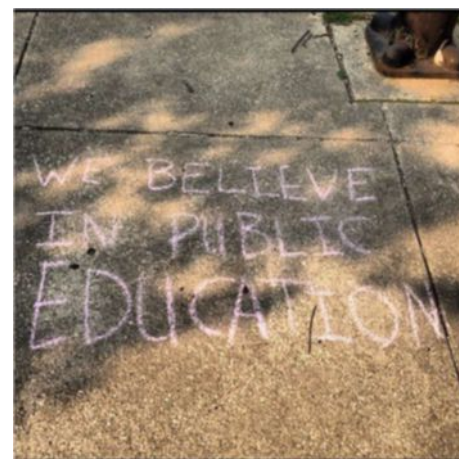 WE BELIEVE
IN PUBLIC
EDUCATION